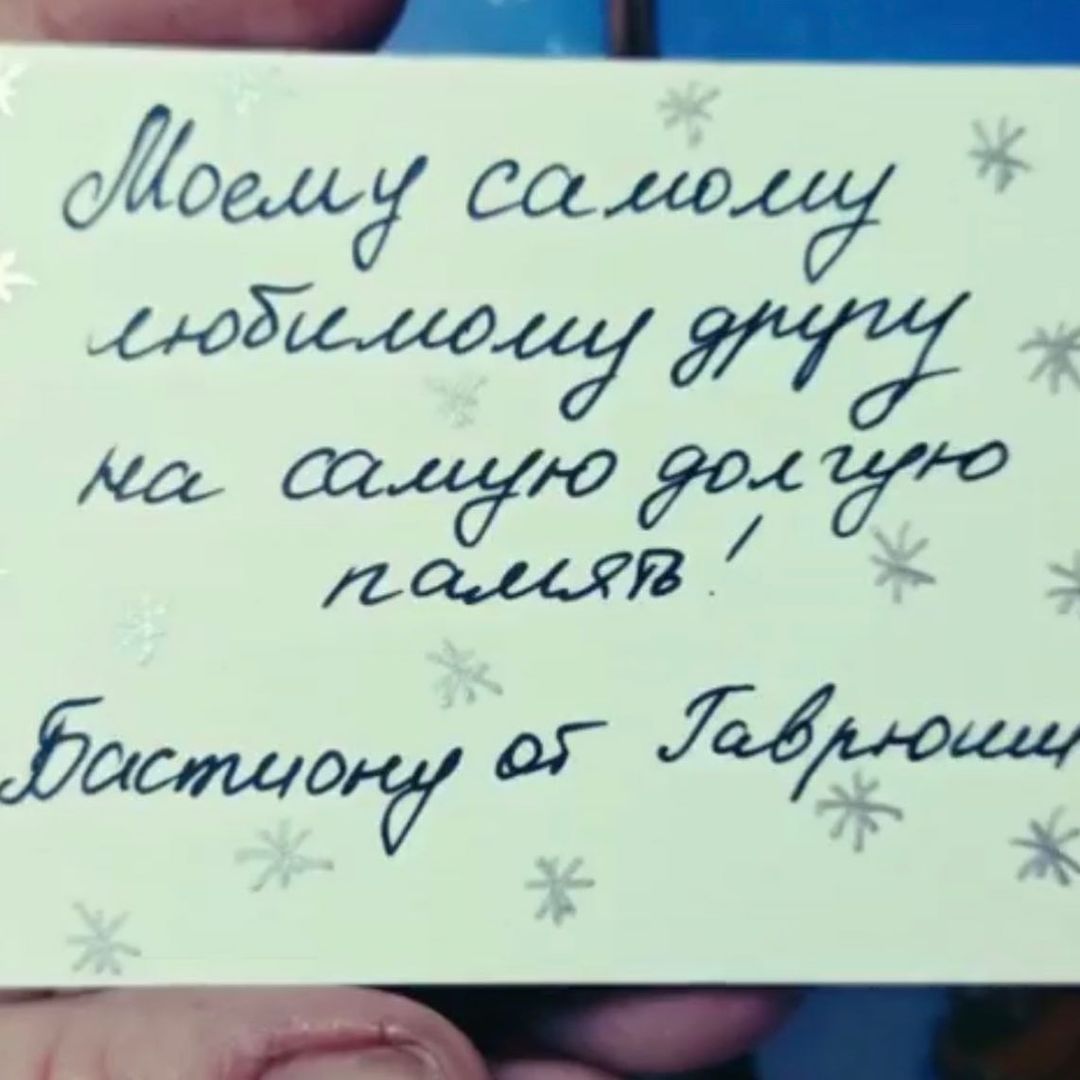 Моему самому
любимому другу
на самую долгую
память!
Бастиону от Гаврюши